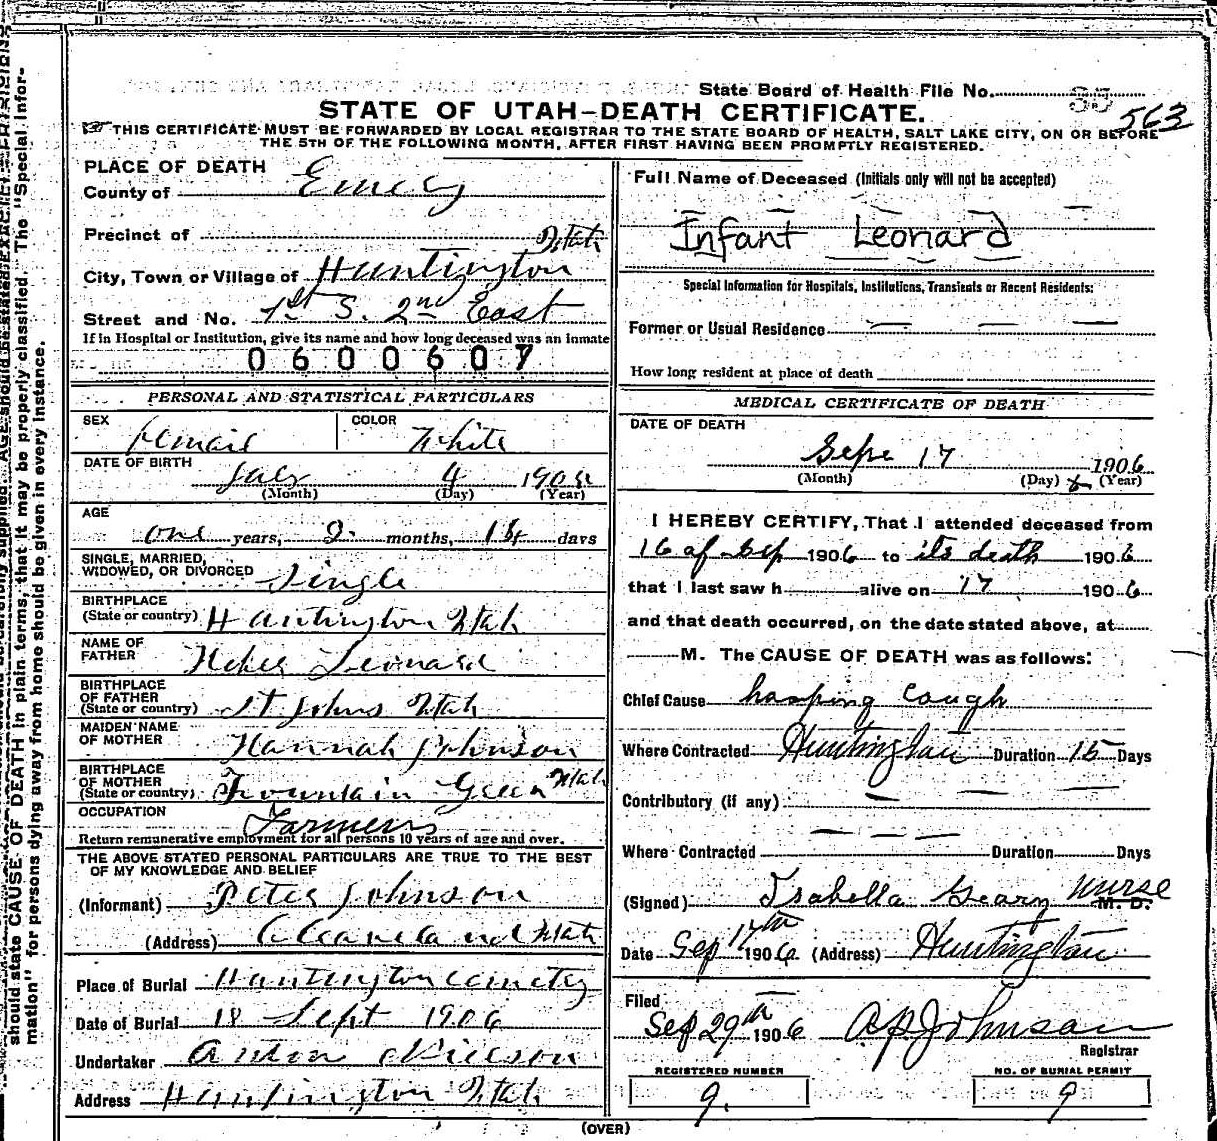 State Board of Health File No. 35
563
STATE OF UTAH—DEATH CERTIFICATE.
THIS CERTIFICATE MUST BE FORWARDED BY LOCAL REGISTRAR TO THE STATE BOARD OF HEALTH, SALT LAKE CITY, ON OR BEFORE
THE 5TH OF THE FOLLOWING MONTH, AFTER FIRST HAVING BEEN PROMPTLY REGISTERED.
PLACE OF DEATH
County of Emery
Precinct of
City, Town or Village of Huntington Utah
Street and No. 1st S. 2nd East
If in Hospital or Institution, give its name and how long deceased was an inmate
0600607
PERSONAL AND STATISTICAL PARTICULARS
SEX Female COLOR White
DATE OF BIRTH July 4 190
(Month) (Day) (Year)
AGE
one years, 2 months, 14 days
SINGLE, MARRIED,
WIDOWED, OR DIVORCED Single
BIRTHPLACE
(State or country) Huntington Utah
NAME OF
FATHER Heber Leonard
BIRTHPLACE
OF FATHER
(State or country) St Johns Utah
MAIDEN NAME
OF MOTHER Hannah Johnson
BIRTHPLACE
OF MOTHER
(State or country) Fountain Green Utah
OCCUPATION Farmers
Return remunerative employment for all persons 10 years of age and over.
THE ABOVE STATED PERSONAL PARTICULARS ARE TRUE TO THE BEST
OF MY KNOWLEDGE AND BELIEF
(Informant) Peter Johnson
(Address) Cleaveland Utah
Place of Burial Huntington cemetery
Date of Burial 18 Sept 1906
Undertaker Anton Nielson
Address Huntington Utah
Full Name of Deceased (Initials only will not be accepted)
Infant Leonard
Special Information for Hospitals, Institutions, Transients or Recent Residents:
Former or Usual Residence
How long resident at place of death
MEDICAL CERTIFICATE OF DEATH
DATE OF DEATH
Sepe 17 1906
(Month) (Day) (Year)
I HEREBY CERTIFY, That I attended deceased from
16 of Sep 1906 to its death 1906
that I last saw h alive on 17 1906
and that death occurred, on the date stated above, at
M. The CAUSE OF DEATH was as follows:
Chief Cause hooping Cough
Where Contracted Huntington Duration 15 Days
Contributory (if any)
Where Contracted Duration Days
(Signed) Isabella Geary Nurse M. D.
Date Sep 17th 1906 (Address) Huntington
Filed
Sep 29th 1906 A P Johnson
Registrar
REGISTERED NUMBER
9.
NO. OF BURIAL PERMIT
9
(OVER)
should state CAUSE OF DEATH in plain terms, that it may be properly classified. The "Special Infor-
mation" for persons dying away from home should be given in every instance.